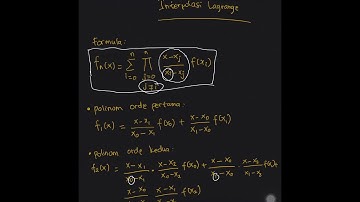 Interpolasi Lagrange
Formula:
fₙ(x) = Σ_{i=0}^{n} ∏_{j=0, j≠i}^{n} (x-xⱼ)/(xᵢ-xⱼ) f(xᵢ)
• Polinom orde pertama:
f₁(x) = (x-x₁)/(x₀-x₁) f(x₀) + (x-x₀)/(x₁-x₀) f(x₁)
• Polinom orde kedua:
f₂(x) = (x-x₁)/(x₀-x₁) · (x-x₂)/(x₀-x₂) f(x₀) + (x-x₀)/(x₁-x₀) · (x-x₂)/(x₁-x₂) f(x₁)+
x-x₀ x-x₁ f(x₂)